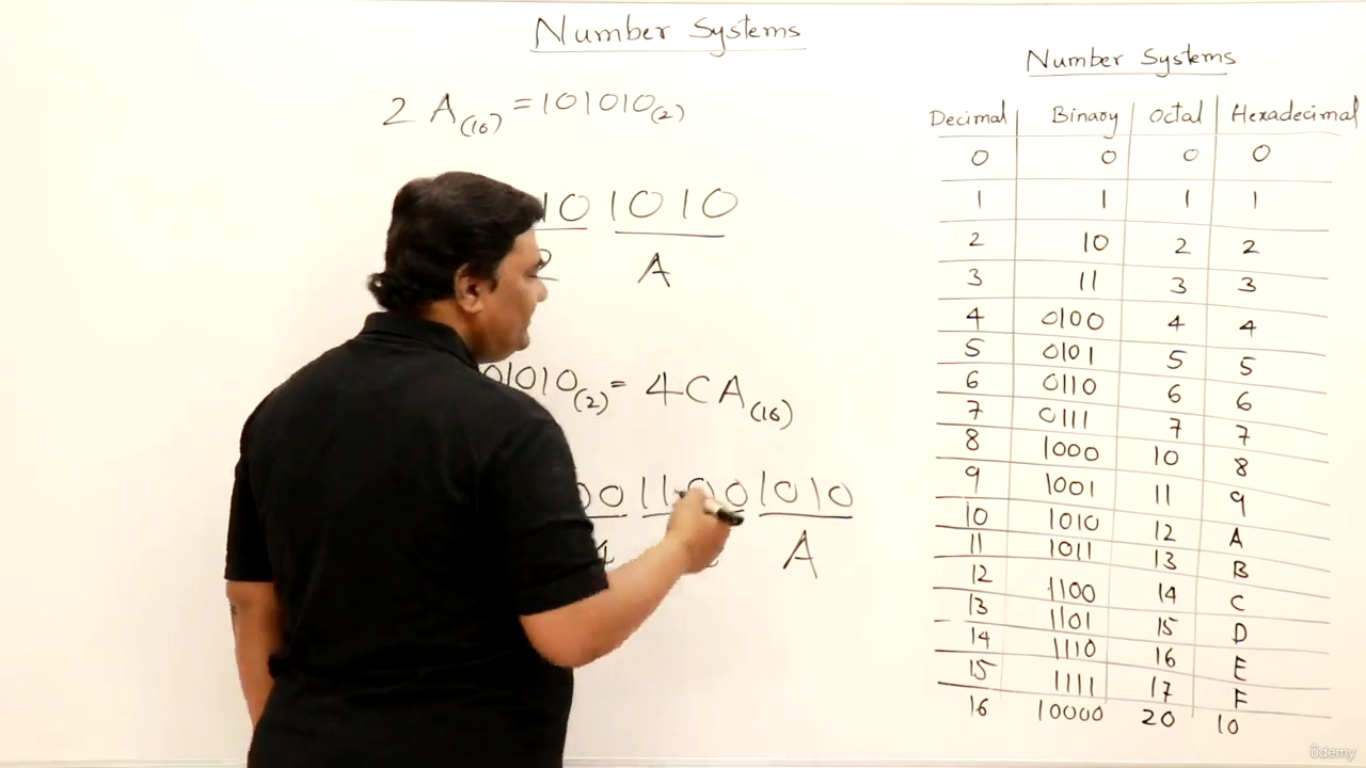 Number Systems
2 A(16) = 101010(2)
10 1010
2 A
01010(2) = 4CA(16)
00 1100 1010
4 A
Number Systems
Decimal Binary Octal Hexadecimal
0 0 0 0
1 1 1 1
2 10 2 2
3 11 3 3
4 0100 4 4
5 0101 5 5
6 0110 6 6
7 0111 7 7
8 1000 10 8
9 1001 11 9
10 1010 12 A
11 1011 13 B
12 1100 14 C
13 1101 15 D
14 1110 16 E
15 1111 17 F
16 10000 20 10
ûdemy